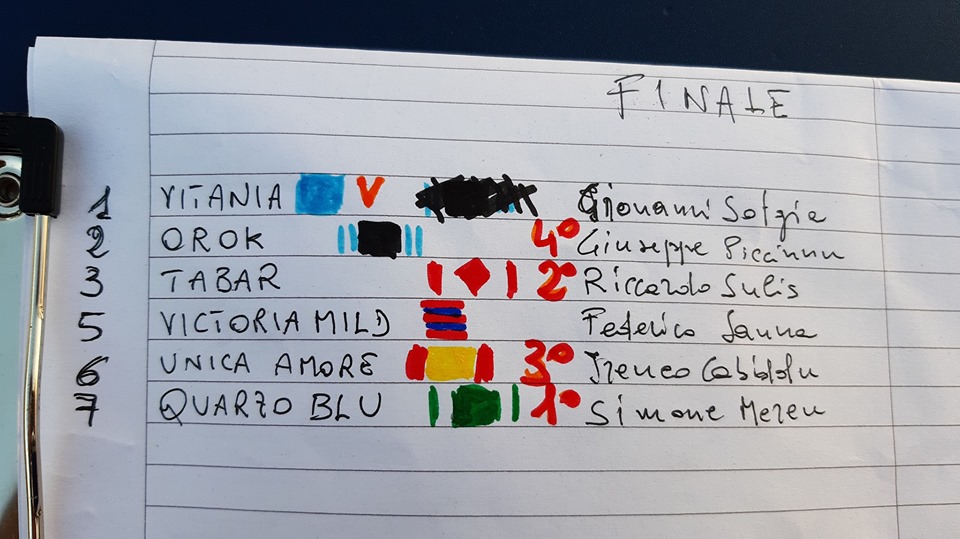 FINALE
1 VITANIA V Giovanni Sotgia
2 OROK 4° Giuseppe Piccinnu
3 TABAR 2° Riccardo Sulis
5 VICTORIA MILD Federico Sanna
6 UNICA AMORE 3° Ireneo Cabiddu
7 QUARZO BLU 1° Simone Mereu